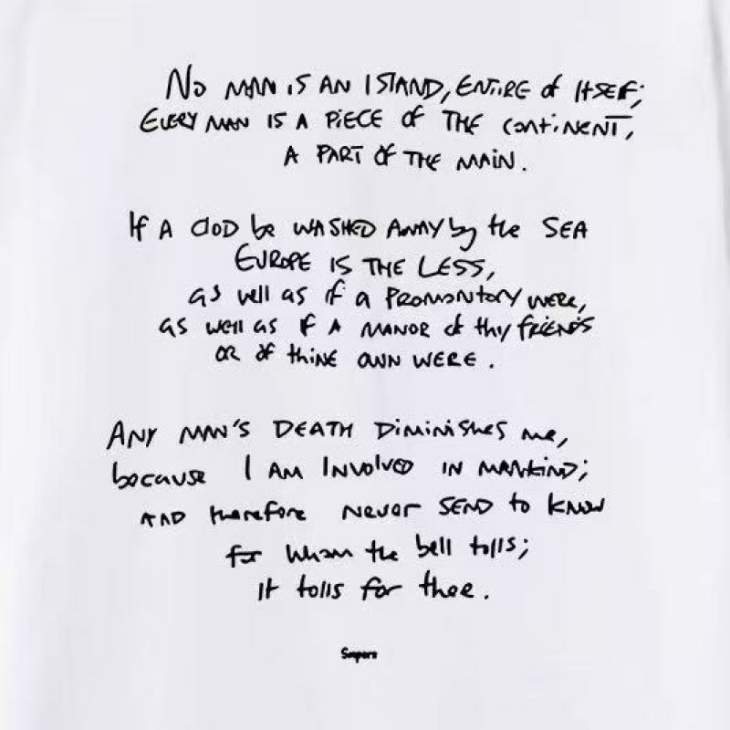 No MAN iS AN ISTAND, ENTiRE of ITSElF;
EVERY MAN IS A PiECE Of THE contiNENT,
A PART Of THE MAiN.
If A cloD be WASHED AWAY by the SEA
EUROPE IS THE LESS,
as well as if a PROMONTORY WERE,
as well as if A MANOR of thy friENDS
OR Of thiNE OWN WERE.
ANY MAN'S DEATH DiMiNiSHES me,
because I AM INVolvED IN MANkIND;
AND therefore NEVER SEND to kNOW
for whom the bell tolls;
It tolls for thee.